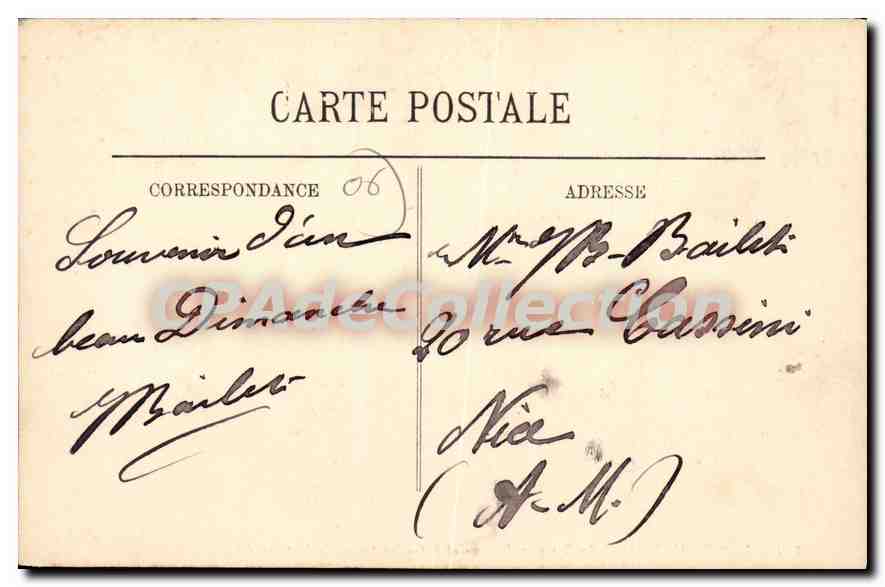 CARTE POSTALE
CORRESPONDANCE
06
Souvenir d'un
beau Dimanche
JBailet
ADRESSE
Mr JB. Bailet
20 rue Cassini
Nice
(A-M.)
CPAdeCollection